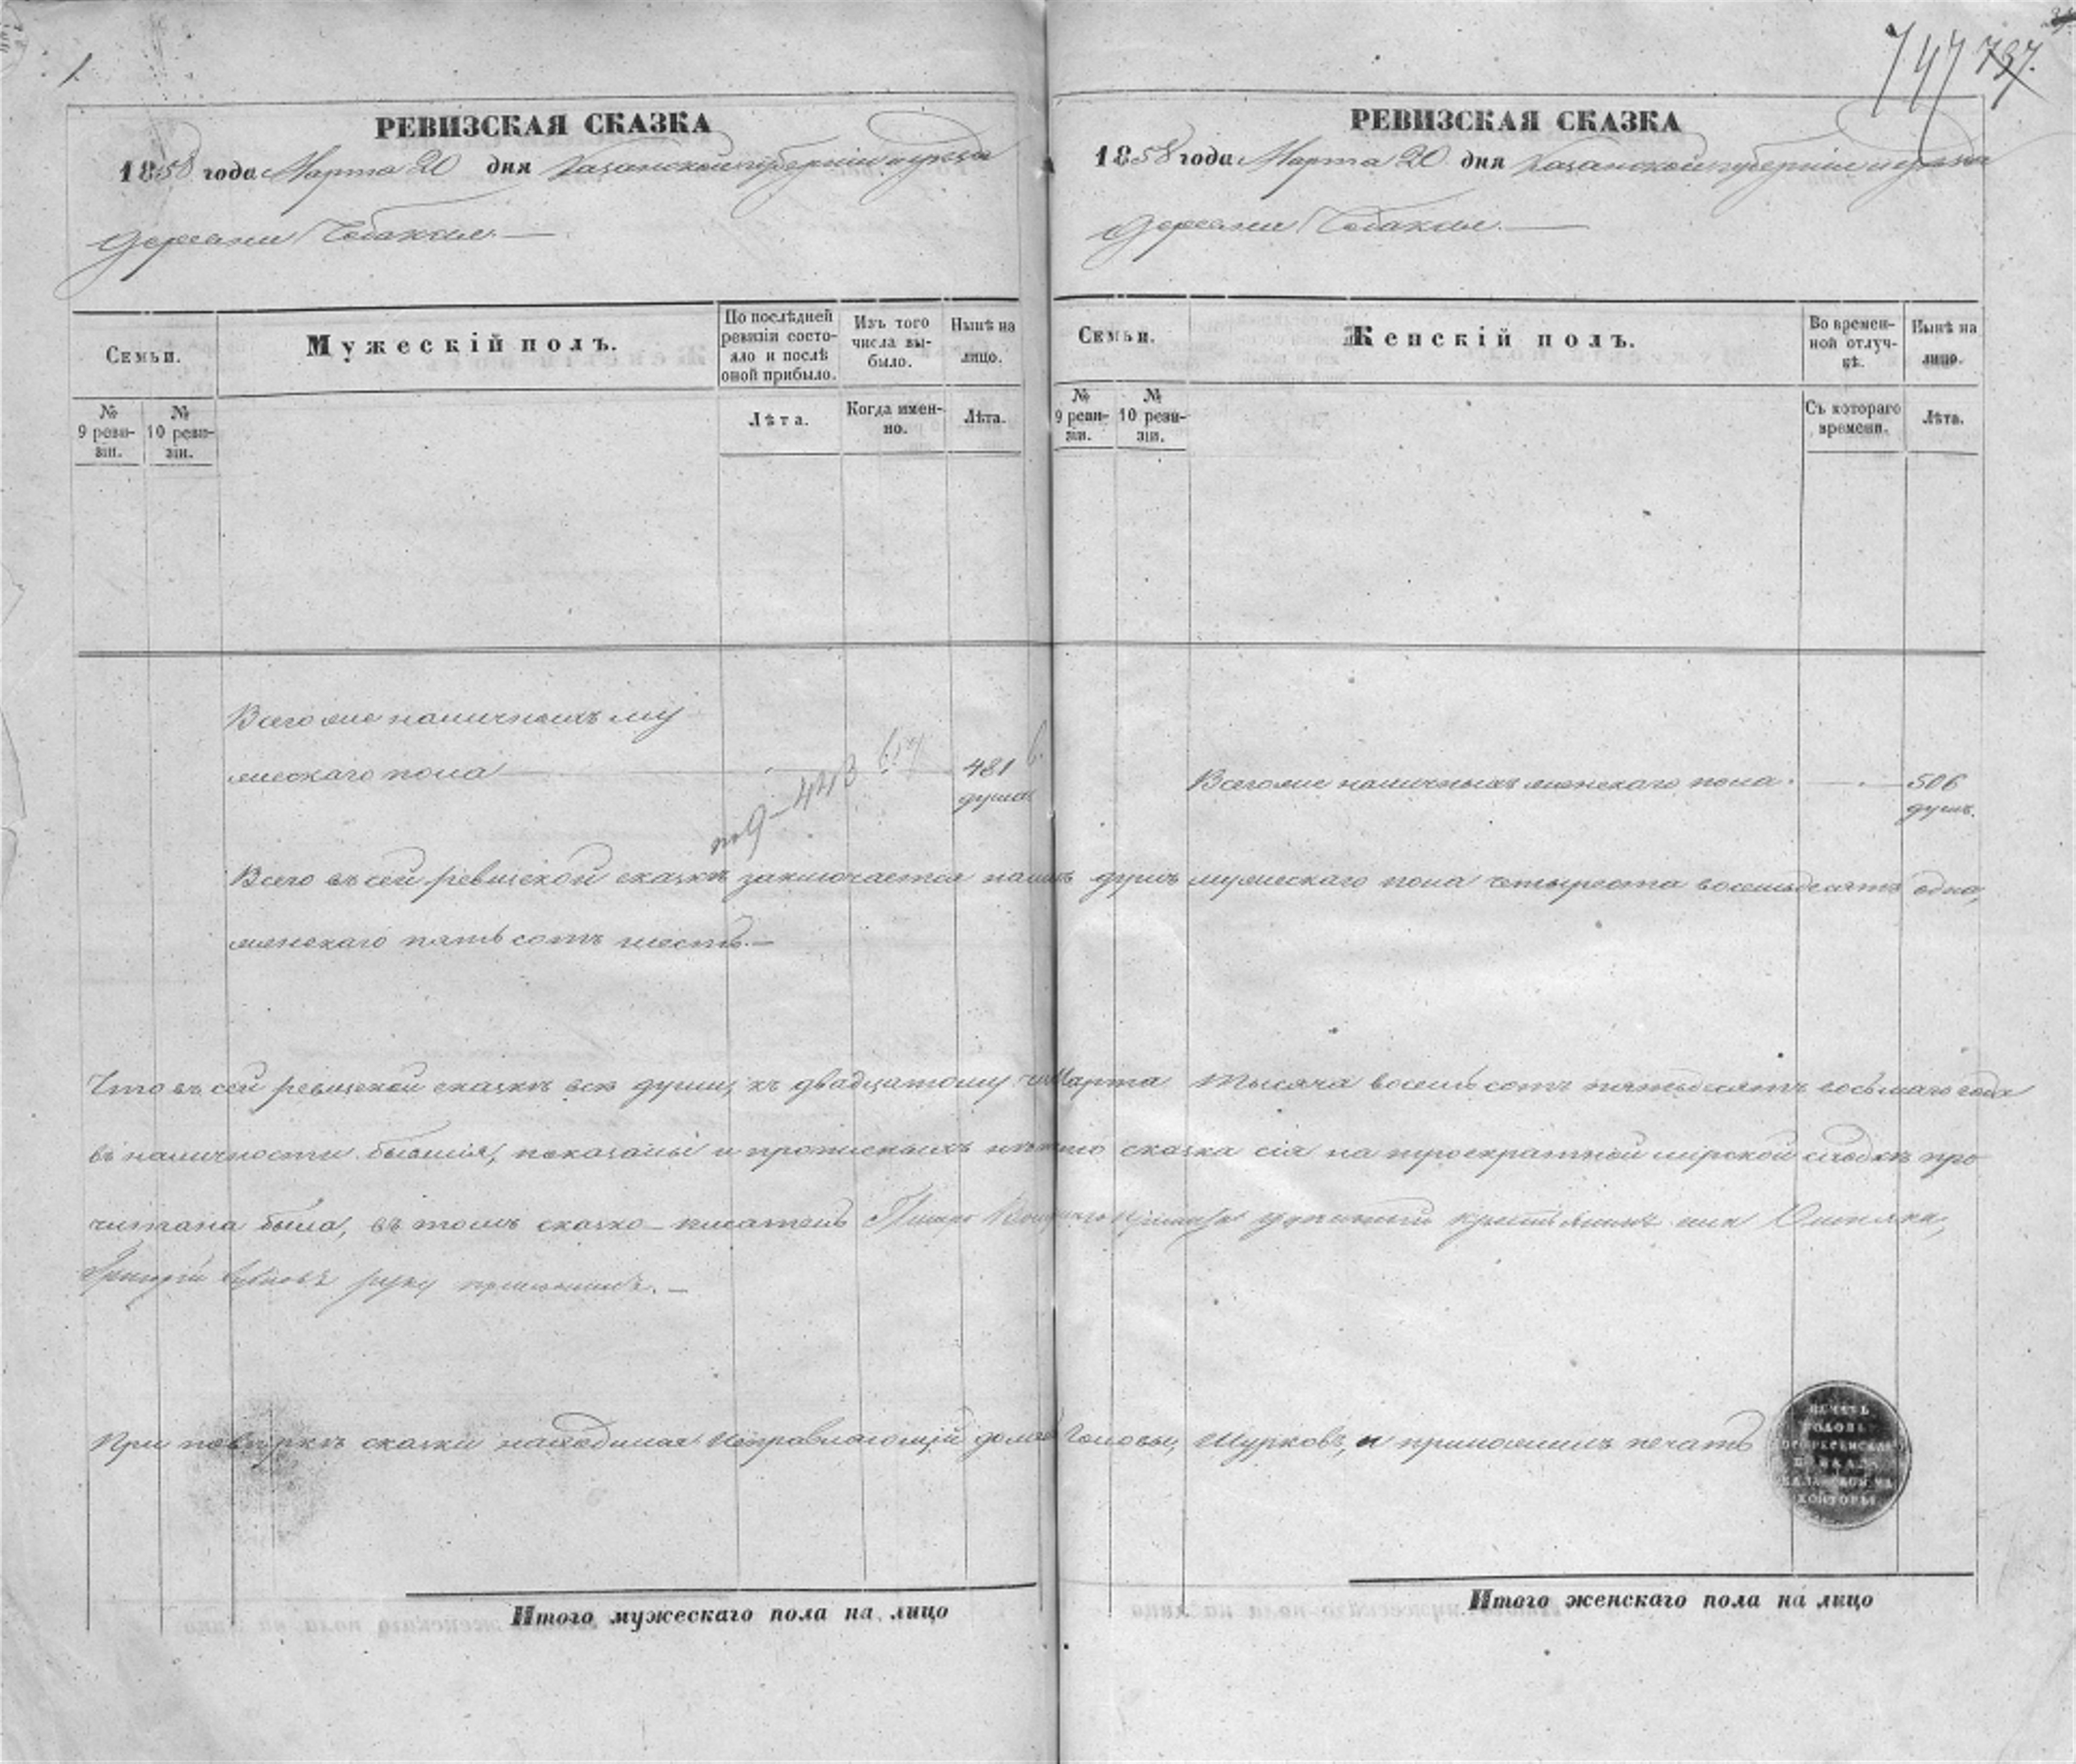 1.
747 737.
РЕВИЗСКАЯ СКАЗКА
1858 года Марта 20 дня Казанской губерніи и уѣзда
деревни
Семьи.
Мужескій полъ.
По послѣдней ревизіи состояло и послѣ оной прибыло.
Изъ того числа выбыло.
Нынѣ на лицо.
№ 9 ревизіи.
№ 10 ревизіи.
Лѣта.
Когда именно.
Лѣта.
Всего же наличныхъ му
жескаго пола — 481
душа
по 9 — 443
РЕВИЗСКАЯ СКАЗКА
1858 года Марта 20 дня Казанской губерніи и уѣзда
деревни
Семьи.
Женскій полъ.
Во временной отлучкѣ.
Нынѣ на лицо.
№ 9 ревизіи.
№ 10 ревизіи.
Съ котораго времени.
Лѣта.
Всего же наличныхъ женскаго пола. — 506
душъ.
Всего въ сей ревизской сказкѣ заключается налич душъ мужескаго пола четыреста восемьдесятъ одна,
женскаго пять сотъ шесть. —
Что въ сей ревизской сказкѣ всѣ души, къ двадцатому Марта тысяча восемь сотъ пятьдесятъ восьмаго года
въ наличности бывшія, показаны и прописныхъ нѣтъ сказка сія на троекратной мірской сходкѣ про
читана была, въ томъ сказко-писатель крестьянинъ
Григорій руку приложилъ. —
При повѣркѣ сказки находился Исправляющій долж Головы, Шурковъ, и приложилъ печать
ПЕЧАТЬ
КОНТОРЫ
Итого мужескаго пола на лицо
Итого женскаго пола на лицо